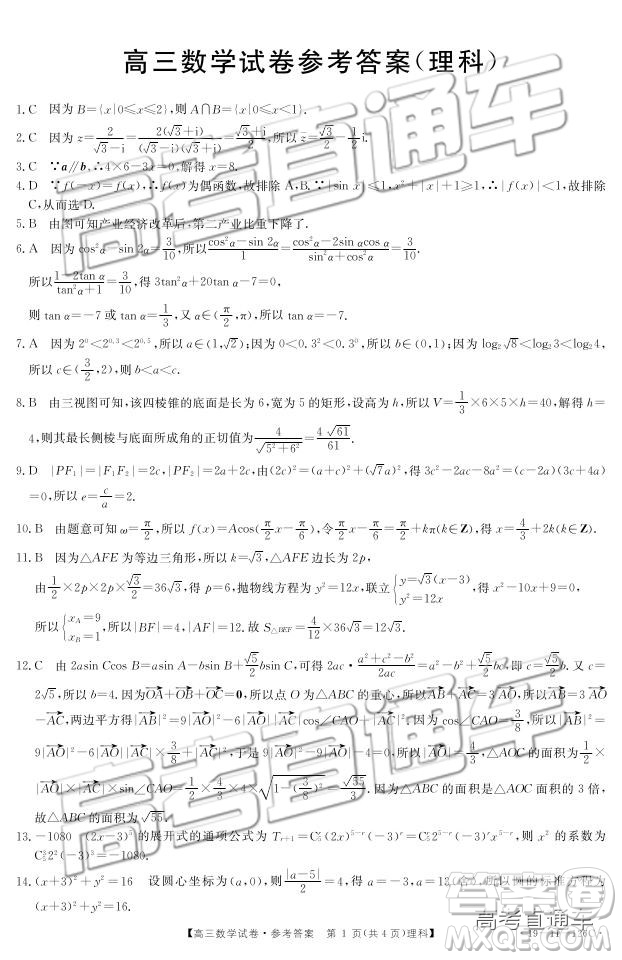 高三数学试卷参考答案(理科)
1. C 因为 B={x|0≤x≤2},则 A∩B={x|0≤x<1}.
2. C 因为 z=2/(√3-i)=2(√3+i)/((√3-i)(√3+i))=(√3+i)/2,所以 z̄=√3/2-1/2 i.
3. C ∵a∥b,∴4×6-3x=0,解得 x=8.
4. D ∵f(-x)=f(x),∴f(x)为偶函数,故排除 A,B.∵|sin x|≤1,x²+|x|+1≥1,∴f(x)≤1,故排除
C,从而选 D.
5. B 由图可知产业经济改革后,第二产业比重下降了.
6. A 因为 cos²α-sin 2α=3/10,所以(cos²α-sin 2α)/1=(cos²α-2sin αcos α)/(sin²α+cos²α)
所以(1-2tan α)/(tan²α+1)=3/10,得 3tan²α+20tan α-7=0,
则 tan α=-7 或 tan α=1/3,又 α∈(π/2,π),所以 tan α=-7.
7. A 因为 2⁰<2^0.3<2^0.5,所以 a∈(1,√2);因为 0<0.3²<0.3⁰,所以 b∈(0,1);因为 log₂√8<log₂3<log₂4,
所以 c∈(3/2,2),则 b<a<c.
8. B 由三视图可知,该四棱锥的底面是长为 6,宽为 5 的矩形,设高为 h,所以 V=1/3×6×5×h=40,解得 h=
4,则其最长侧棱与底面所成角的正切值为 4/√(5²+6²)=4√61/61.
9. D |PF₁|=|F₁F₂|=2c,|PF₂|=2a+2c,由(2c)²=(a+c)²+(√7a)²,得 3c²-2ac-8a²=(c-2a)(3c+4a)
=0,所以 e=c/a=2.
10. B 由题意可知 ω=π/2,所以 f(x)=Acos(π/2 x-π/6),令 π/2 x-π/6=π/2+kπ(k∈Z),得 x=4/3+2k(k∈Z).
11. B 因为△AFE 为等边三角形,所以 k=√3,△AFE 的边长为 2p,
由 1/2×2p×2p×√3/2=36√3,得 p=6,抛物线方程为 y²=12x,联立{y=√3(x-3) y²=12x,得 x²-10x+9=0,
所以{x_A=9 x_B=1,所以|BF|=4,|AF|=12.故 S△BEF=4/12×36√3=12√3.
12. C 由 2asin Ccos B=asin A-bsin B+√5/2 bsin C,可得 2ac·(a²+c²-b²)/2ac=a²-b²+√5/2 bc,即 c=√5/2 b.又 c=
2√5,所以 b=4.因为OA+OB+OC=0,所以点 O 为△ABC 的重心,所以AB+AC=3AO,所以AB=3AO
-AC,两边平方得|AB|²=9|AO|²-6|AO||AC|cos∠CAO+|AC|².因为 cos∠CAO=3/8,所以|AB|²=
9|AO|²-6|AO||AC|×3/8+|AC|²,于是 9|AO|²-9|AO|-4=0,所以|AO|=4/3,△AOC 的面积为 1/2×
|AO|×|AC|×sin∠CAO=1/2×4/3×4×√(1-(3/8)²)=√55/3.因为△ABC 的面积是△AOC 面积的 3 倍,
故△ABC 的面积为√55.
13. -1080 (2x-3)⁵的展开式的通项公式为 T_{r+1}=C₅^r(2x)^{5-r}(-3)^r=C₅^r2^{5-r}(-3)^r x^{5-r},则 x²的系数为
C₅³2²(-3)³=-1080.
14. (x+3)²+y²=16 设圆心坐标为(a,0),则|a-5|/2=4,得 a=-3
(x+3)²+y²=16.
【高三数学试卷·参考答案 第 1 页(共 4 页)理科】
高考直通车
高考直通车
高考直通车